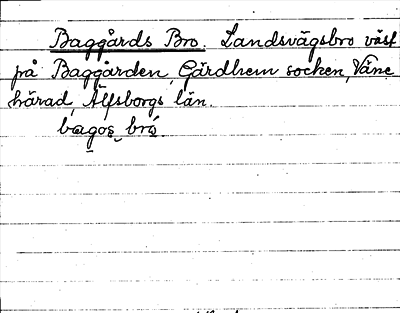 Baggårds Bro. Landsvägsbro väst
på Baggården, Gärdhem socken, Väne
härad, Älfsborgs län.
bagos_bró.